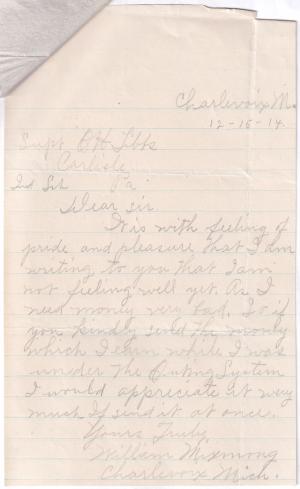 Charlevoix M
12-15-14.
Supt O H Libbs
Carlisle,
Ind Sch Pa
Dear sir
It is with feeling of
pride and pleasure that I am
writing to you that I am
not feeling well yet. As I
need money very bad. So if
you kindly send the money
which I earn while I was
under the Outing System
I would appreciate it very
much If send it at once.
Yours Truly,
William Mixmong
Charlevoix Mich.